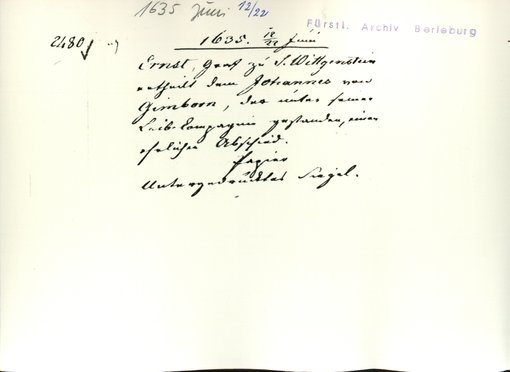 1635 Juni 12/22
Fürstl. Archiv Berleburg
2480
1635. 12/22 Juni
Ernst, Graf zu S. Wittgenstein
ertheilt dem Johannes von
Gimborn, der unter seiner
Leib-Compagnie gestanden, einen
ehrlichen Abschied.
Papier
Untergedrucktes Siegel.